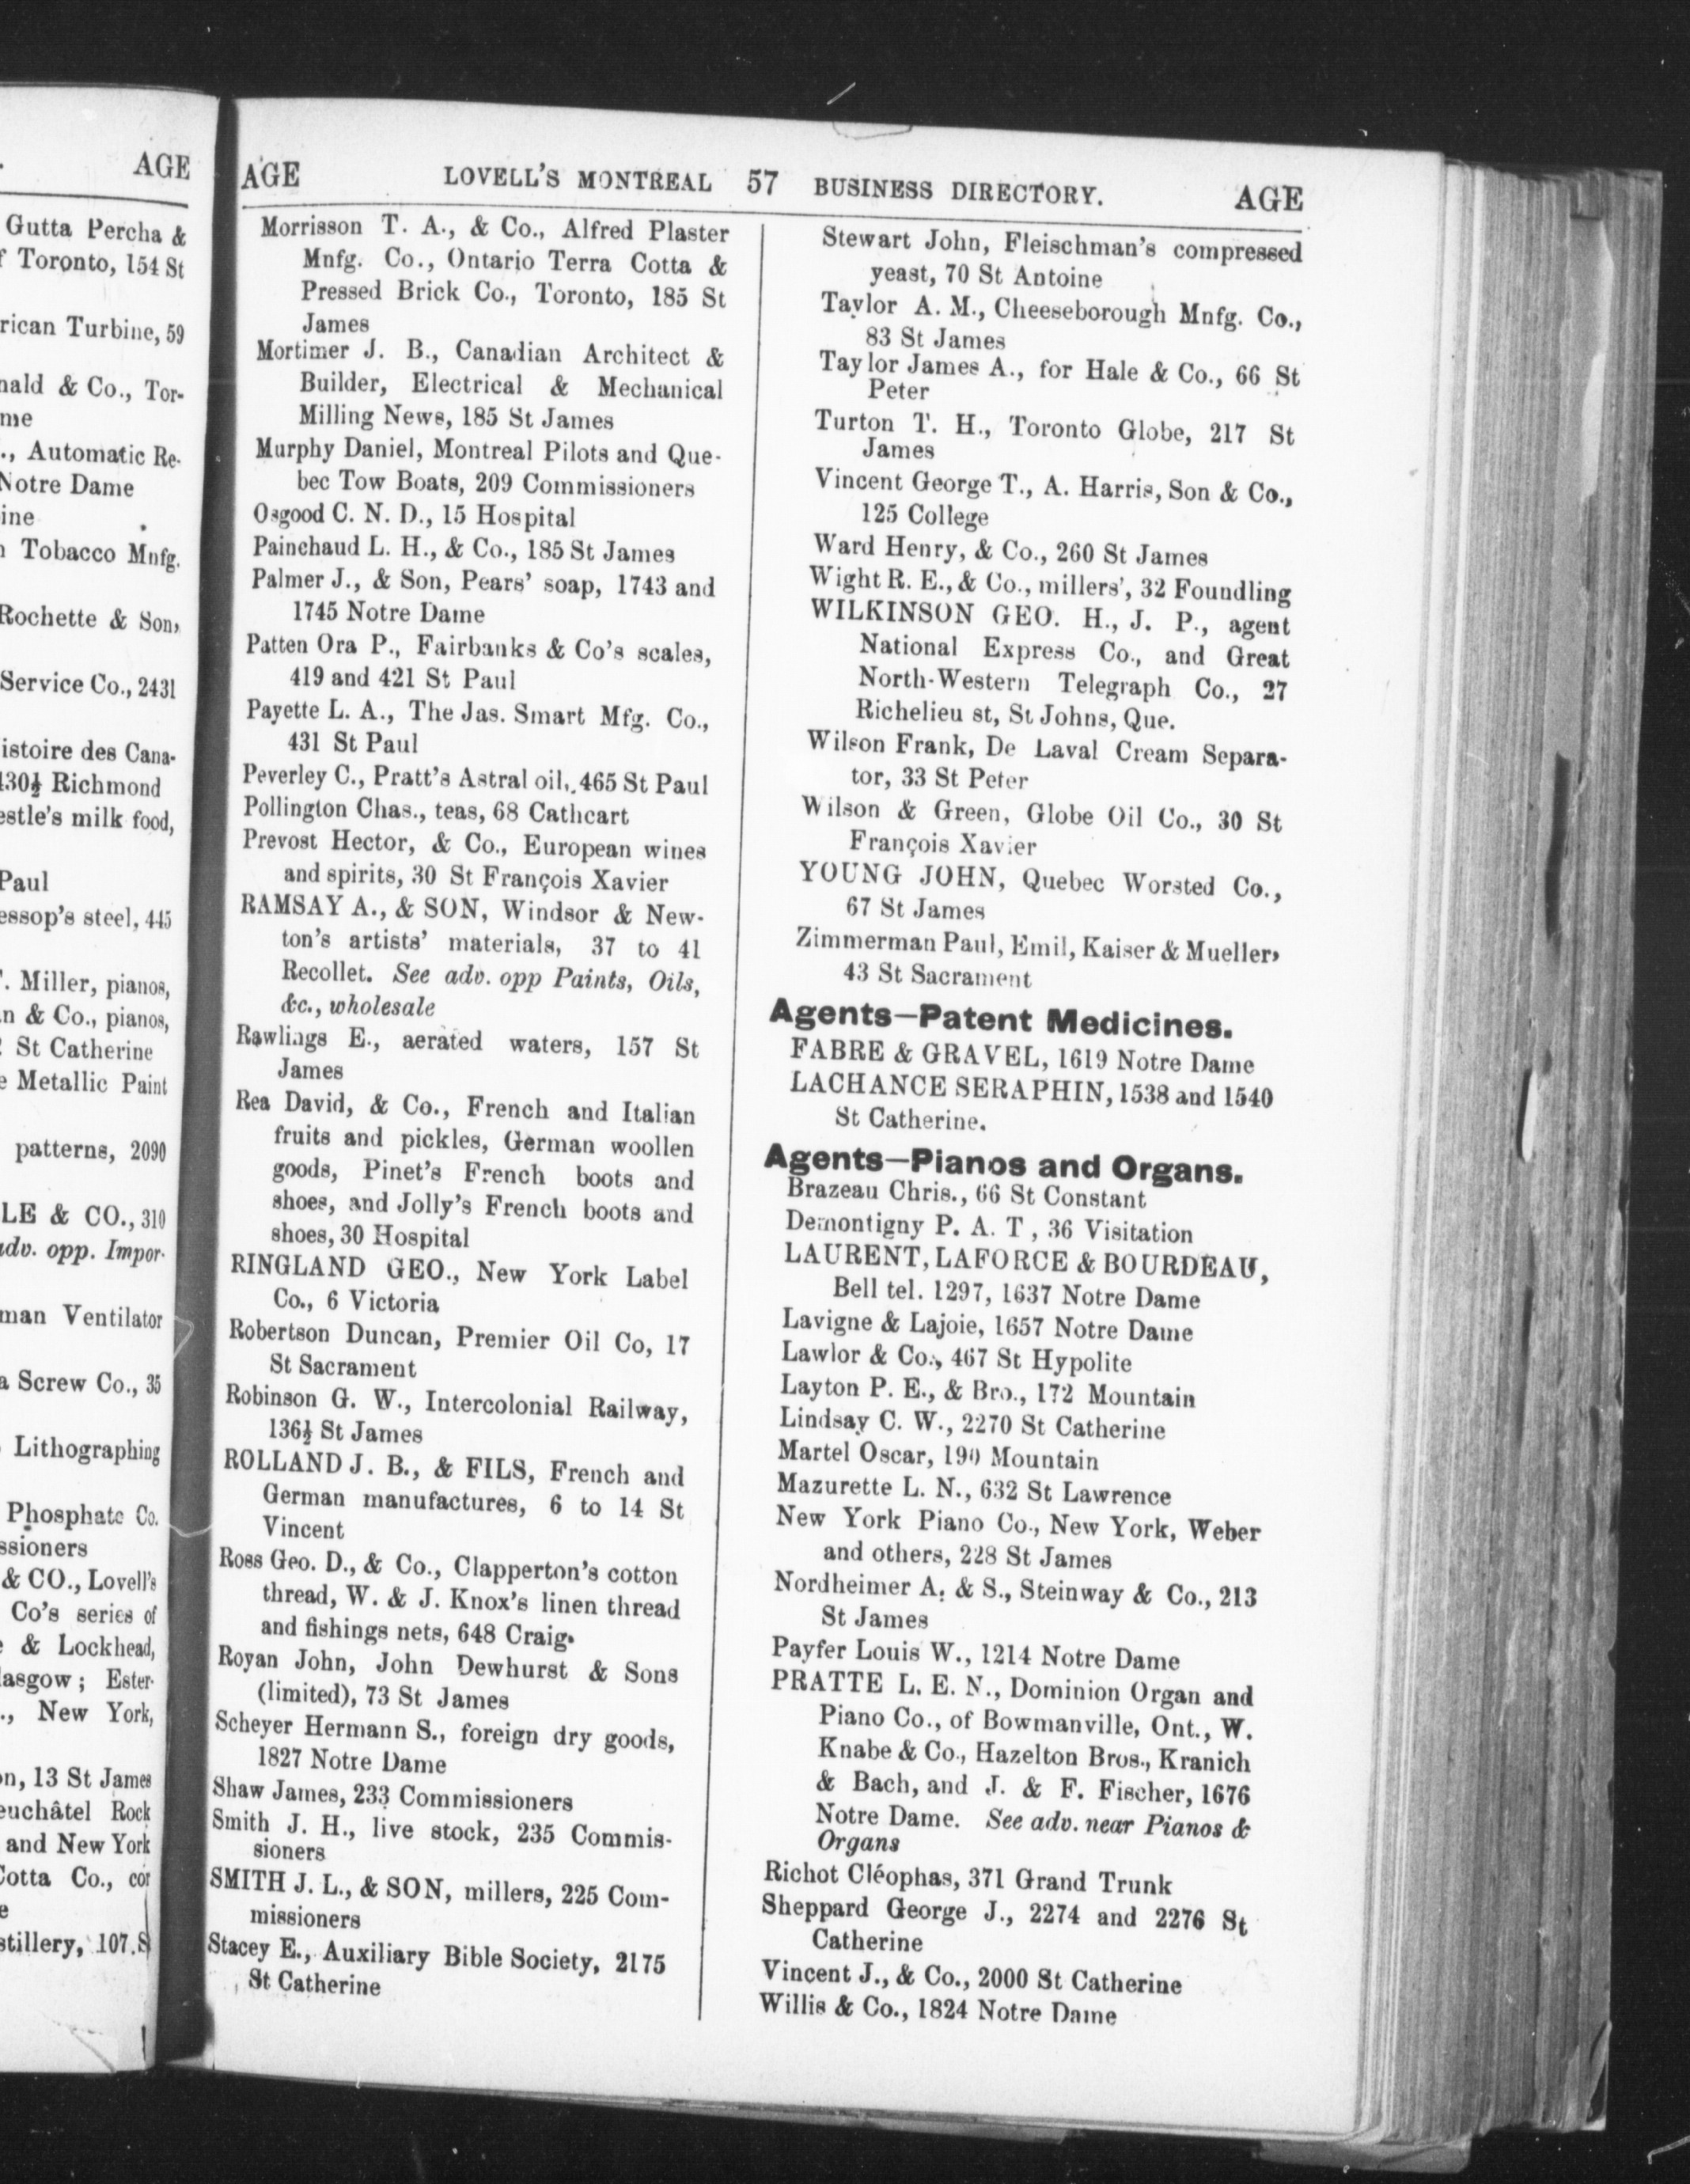 AGE
Gutta Percha &
Toronto, 154 St
rican Turbine, 59
nald & Co., Tor-
me
., Automatic Re-
Notre Dame
ine
Tobacco Mnfg.
Rochette & Son,
Service Co., 2431
istoire des Cana-
130½ Richmond
estle's milk food,
Paul
essop's steel, 445
. Miller, pianos,
n & Co., pianos,
St Catherine
e Metallic Paint
patterns, 2090
LE & CO., 310
adv. opp. Impor-
man Ventilator
a Screw Co., 35
Lithographing
Phosphate Co.
ssioners
& CO., Lovell's
Co's series of
& Lockhead,
lasgow; Ester-
., New York,
on, 13 St James
euchâtel Rock
and New York
Cotta Co., cor
e
stillery, 107 S
AGE LOVELL'S MONTREAL 57 BUSINESS DIRECTORY. AGE
Morrisson T. A., & Co., Alfred Plaster
Mnfg. Co., Ontario Terra Cotta &
Pressed Brick Co., Toronto, 185 St
James
Mortimer J. B., Canadian Architect &
Builder, Electrical & Mechanical
Milling News, 185 St James
Murphy Daniel, Montreal Pilots and Que-
bec Tow Boats, 209 Commissioners
Osgood C. N. D., 15 Hospital
Painchaud L. H., & Co., 185 St James
Palmer J., & Son, Pears' soap, 1743 and
1745 Notre Dame
Patten Ora P., Fairbanks & Co's scales,
419 and 421 St Paul
Payette L. A., The Jas. Smart Mfg. Co.,
431 St Paul
Peverley C., Pratt's Astral oil, 465 St Paul
Pollington Chas., teas, 68 Cathcart
Prevost Hector, & Co., European wines
and spirits, 30 St François Xavier
RAMSAY A., & SON, Windsor & New-
ton's artists' materials, 37 to 41
Recollet. See adv. opp Paints, Oils,
&c., wholesale
Rawlings E., aerated waters, 157 St
James
Rea David, & Co., French and Italian
fruits and pickles, German woollen
goods, Pinet's French boots and
shoes, and Jolly's French boots and
shoes, 30 Hospital
RINGLAND GEO., New York Label
Co., 6 Victoria
Robertson Duncan, Premier Oil Co, 17
St Sacrament
Robinson G. W., Intercolonial Railway,
136½ St James
ROLLAND J. B., & FILS, French and
German manufactures, 6 to 14 St
Vincent
Ross Geo. D., & Co., Clapperton's cotton
thread, W. & J. Knox's linen thread
and fishings nets, 648 Craig.
Royan John, John Dewhurst & Sons
(limited), 73 St James
Scheyer Hermann S., foreign dry goods,
1827 Notre Dame
Shaw James, 233 Commissioners
Smith J. H., live stock, 235 Commis-
sioners
SMITH J. L., & SON, millers, 225 Com-
missioners
Stacey E., Auxiliary Bible Society, 2175
St Catherine
Stewart John, Fleischman's compressed
yeast, 70 St Antoine
Taylor A. M., Cheeseborough Mnfg. Co.,
83 St James
Taylor James A., for Hale & Co., 66 St
Peter
Turton T. H., Toronto Globe, 217 St
James
Vincent George T., A. Harris, Son & Co.,
125 College
Ward Henry, & Co., 260 St James
Wight R. E., & Co., millers', 32 Foundling
WILKINSON GEO. H., J. P., agent
National Express Co., and Great
North-Western Telegraph Co., 27
Richelieu st, St Johns, Que.
Wilson Frank, De Laval Cream Separa-
tor, 33 St Peter
Wilson & Green, Globe Oil Co., 30 St
François Xavier
YOUNG JOHN, Quebec Worsted Co.,
67 St James
Zimmerman Paul, Emil, Kaiser & Mueller,
43 St Sacrament
Agents—Patent Medicines.
FABRE & GRAVEL, 1619 Notre Dame
LACHANCE SERAPHIN, 1538 and 1540
St Catherine.
Agents—Pianos and Organs.
Brazeau Chris., 66 St Constant
Demontigny P. A. T , 36 Visitation
LAURENT, LAFORCE & BOURDEAU,
Bell tel. 1297, 1637 Notre Dame
Lavigne & Lajoie, 1657 Notre Dame
Lawlor & Co., 467 St Hypolite
Layton P. E., & Bro., 172 Mountain
Lindsay C. W., 2270 St Catherine
Martel Oscar, 190 Mountain
Mazurette L. N., 632 St Lawrence
New York Piano Co., New York, Weber
and others, 228 St James
Nordheimer A. & S., Steinway & Co., 213
St James
Payfer Louis W., 1214 Notre Dame
PRATTE L. E. N., Dominion Organ and
Piano Co., of Bowmanville, Ont., W.
Knabe & Co., Hazelton Bros., Kranich
& Bach, and J. & F. Fischer, 1676
Notre Dame. See adv. near Pianos &
Organs
Richot Cléophas, 371 Grand Trunk
Sheppard George J., 2274 and 2276 St
Catherine
Vincent J., & Co., 2000 St Catherine
Willis & Co., 1824 Notre Dame